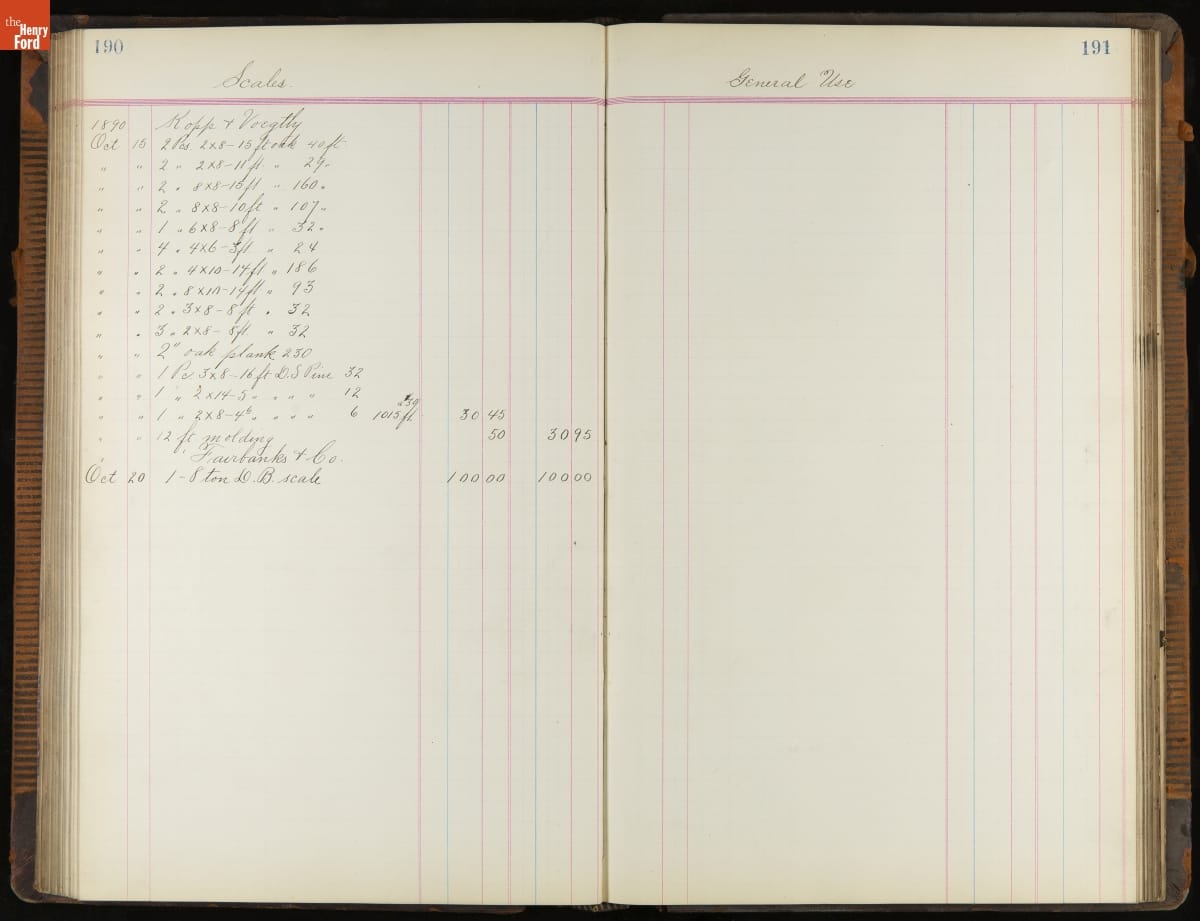 the
Henry
Ford
190
Scales.
1890 Kopp & Voegtly
Oct 15 2 Pcs. 2x8-15 ft oak 40 ft
" " 2 " 2x8-11 ft " 29 "
" " 2 " 8x8-15 ft " 160 "
" " 2 " 8x8-10 ft " 107 "
" " 1 " 6x8-8 ft " 32 "
" " 4 " 4x6-3 ft " 24
" " 2 " 4x10-14 ft " 186
" " 2 " 8x10-14 ft " 93
" " 2 " 3x8-8 ft " 32
" " 3 " 2x8-8 ft " 32
" " 2" oak plank 230
" " 1 Pc. 3x8-16 ft D.S Pine 32
" " 1 " 2x14-5 " " " " 12
" " 1 " 2x8-4⁶ " " " " 6 1015 ft. 30 45
" " 12 ft molding 50 30 95
Fairbanks & Co.
Oct 20 1-8 ton D.B. scale 100 00 100 00
191
General Use